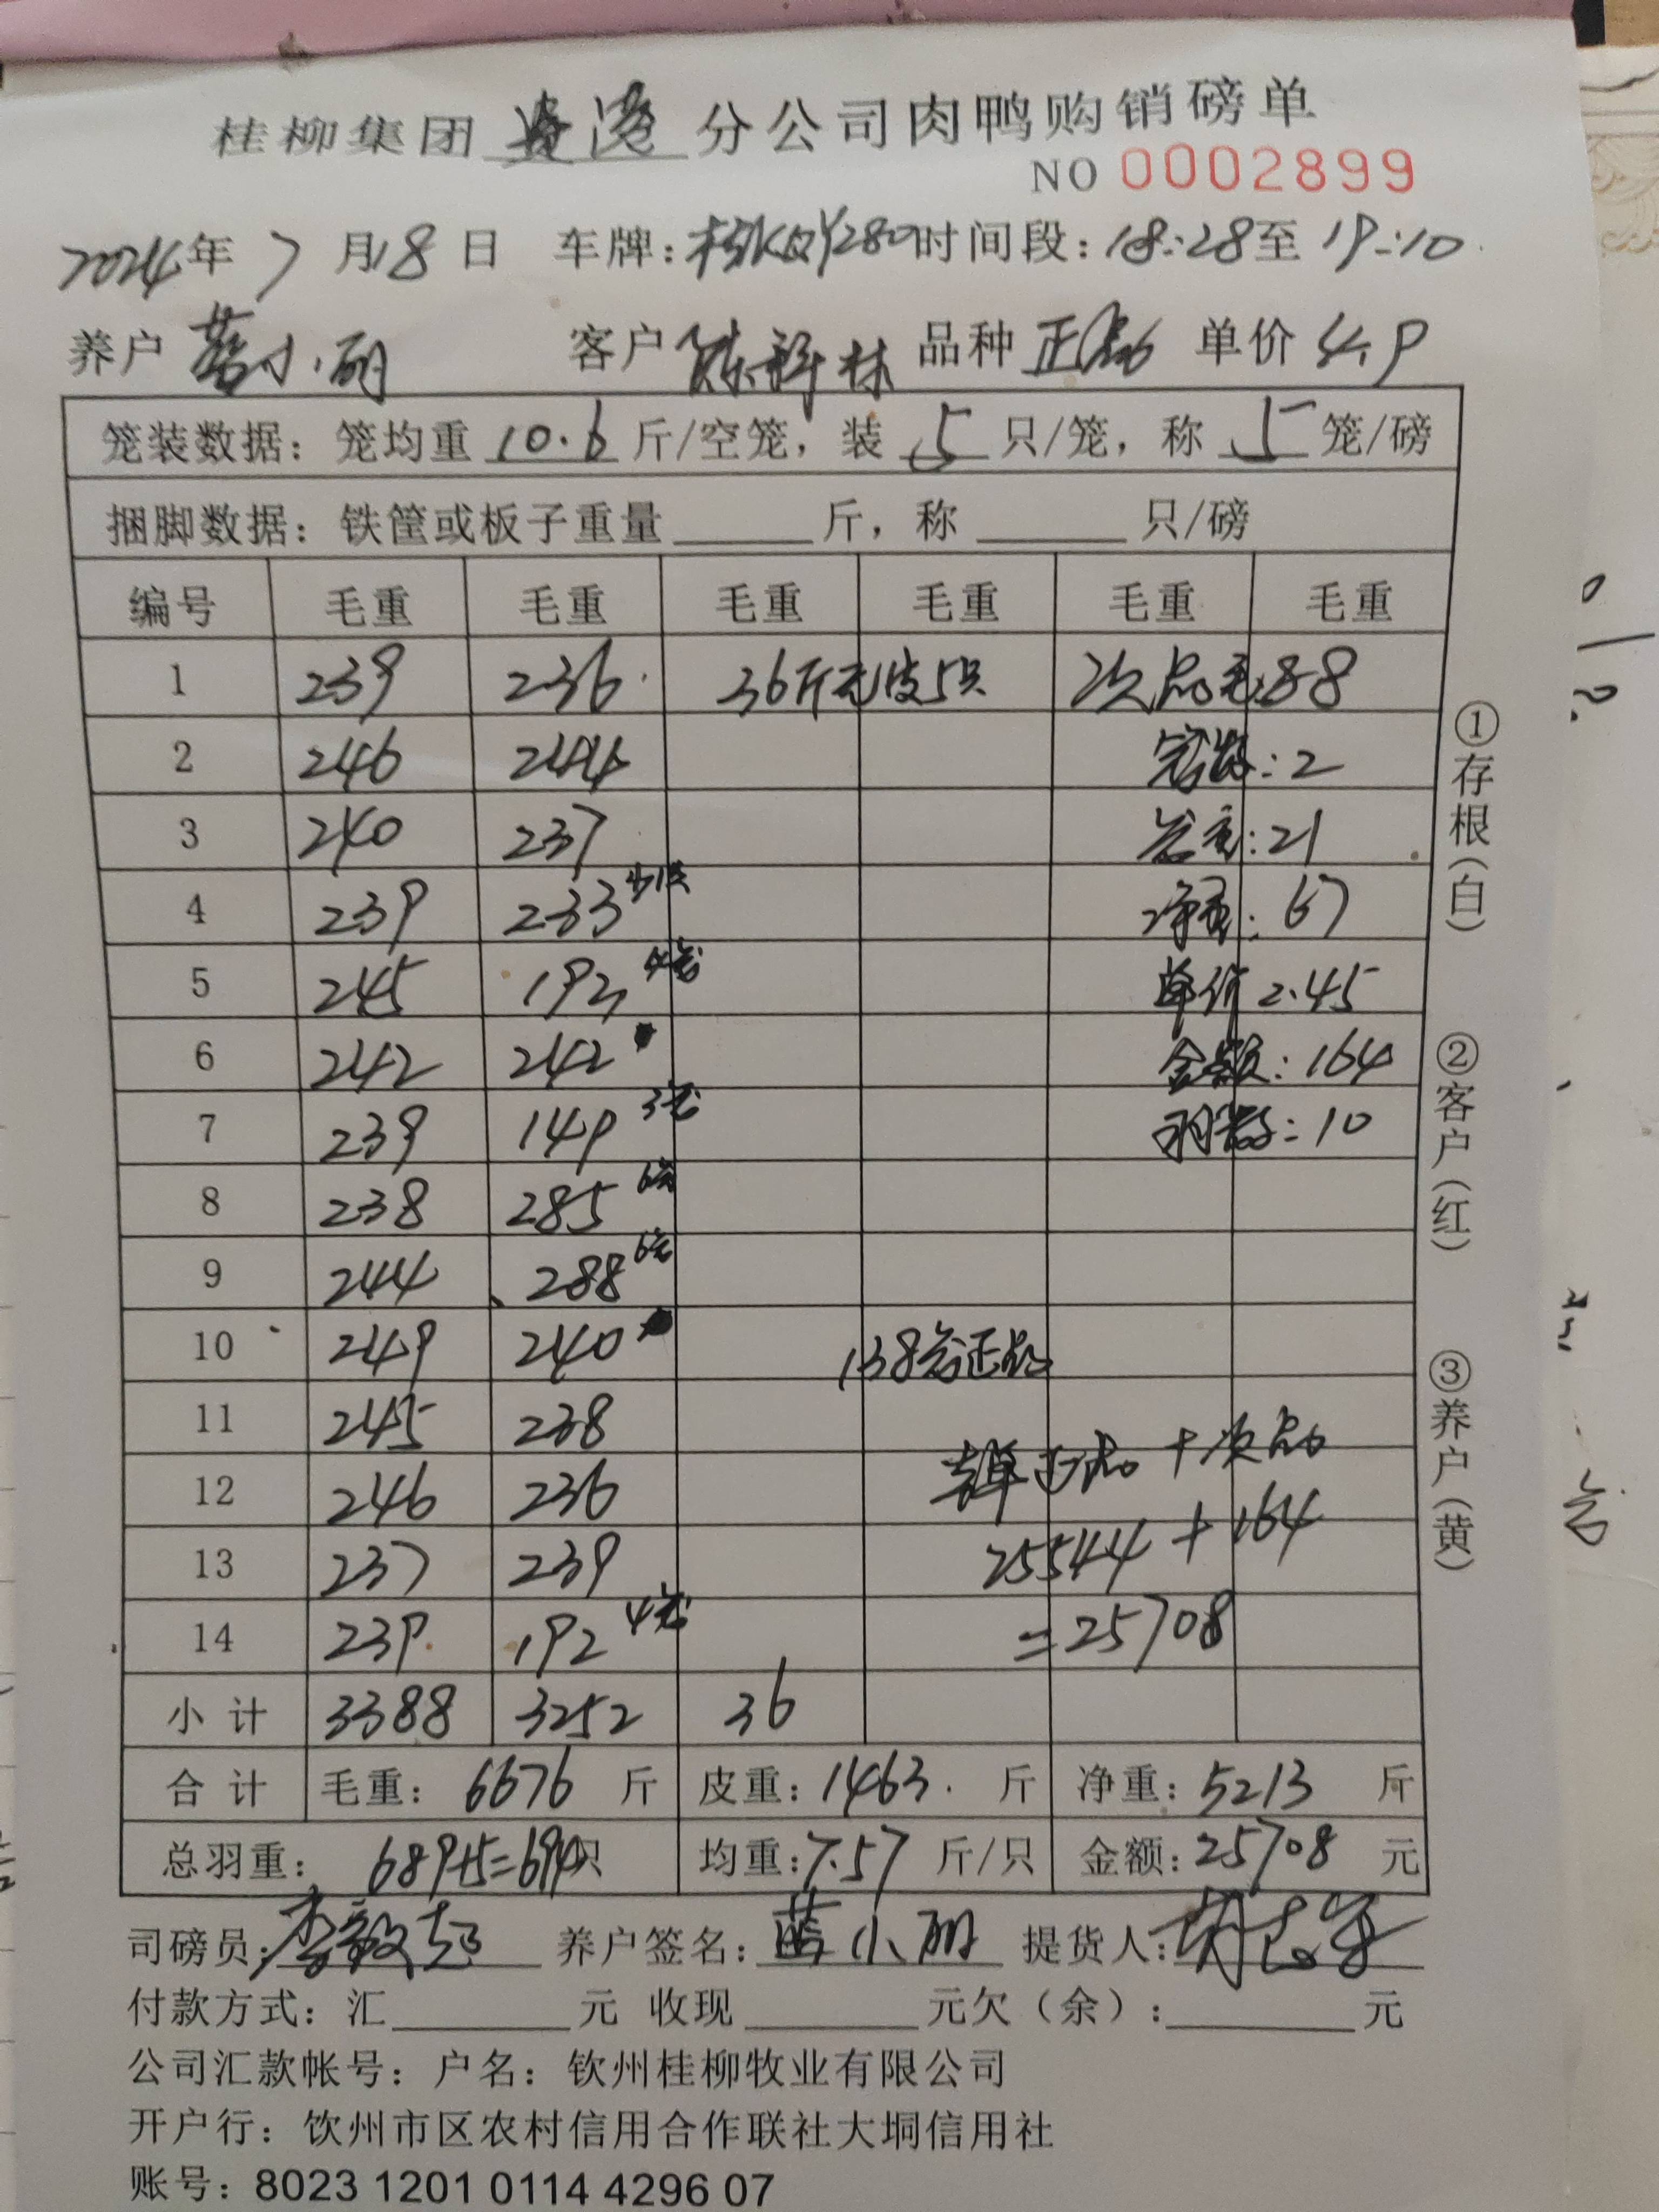 桂柳集团 贵港 分公司肉鸭购销磅单
NO 0002899
2024年 7 月 18 日 车牌: 280 时间段: 18:28 至 19:10
养户 蓝小丽 客户 陈科林 品种 正品 单价 4.9
笼装数据: 笼均重 10.6 斤/空笼, 装 5 只/笼, 称 5 笼/磅
捆脚数据: 铁筐或板子重量 斤, 称 只/磅
编号 毛重 毛重 毛重 毛重 毛重 毛重
1 239 236 36斤无皮5只 次品毛:88
2 246 244 笼数:2
3 240 237 笼重:21
4 239 233 少1只 净重:67
5 245 192 4笼 单价 2.45
6 242 242 金额:164
7 239 149 3笼 羽数:10
8 238 285 6笼
9 244 288 6笼
10 249 240 138笼正品
11 245 238 正品+次品
12 246 236 25544+164
13 237 239
14 239 192 4笼 =25708
小计 3388 3252 36
合计 毛重: 6676 斤 皮重: 1463. 斤 净重: 5213 斤
总羽重: 689+5=694只 均重: 7.57 斤/只 金额: 25708 元
司磅员: 养户签名: 蓝小丽 提货人:
付款方式: 汇 元 收现 元欠(余): 元
公司汇款帐号: 户名: 钦州桂柳牧业有限公司
开户行: 饮州市区农村信用合作联社大垌信用社
账号: 8023 1201 0114 4296 07
①存根(白)
②客户(红)
③养户(黄)